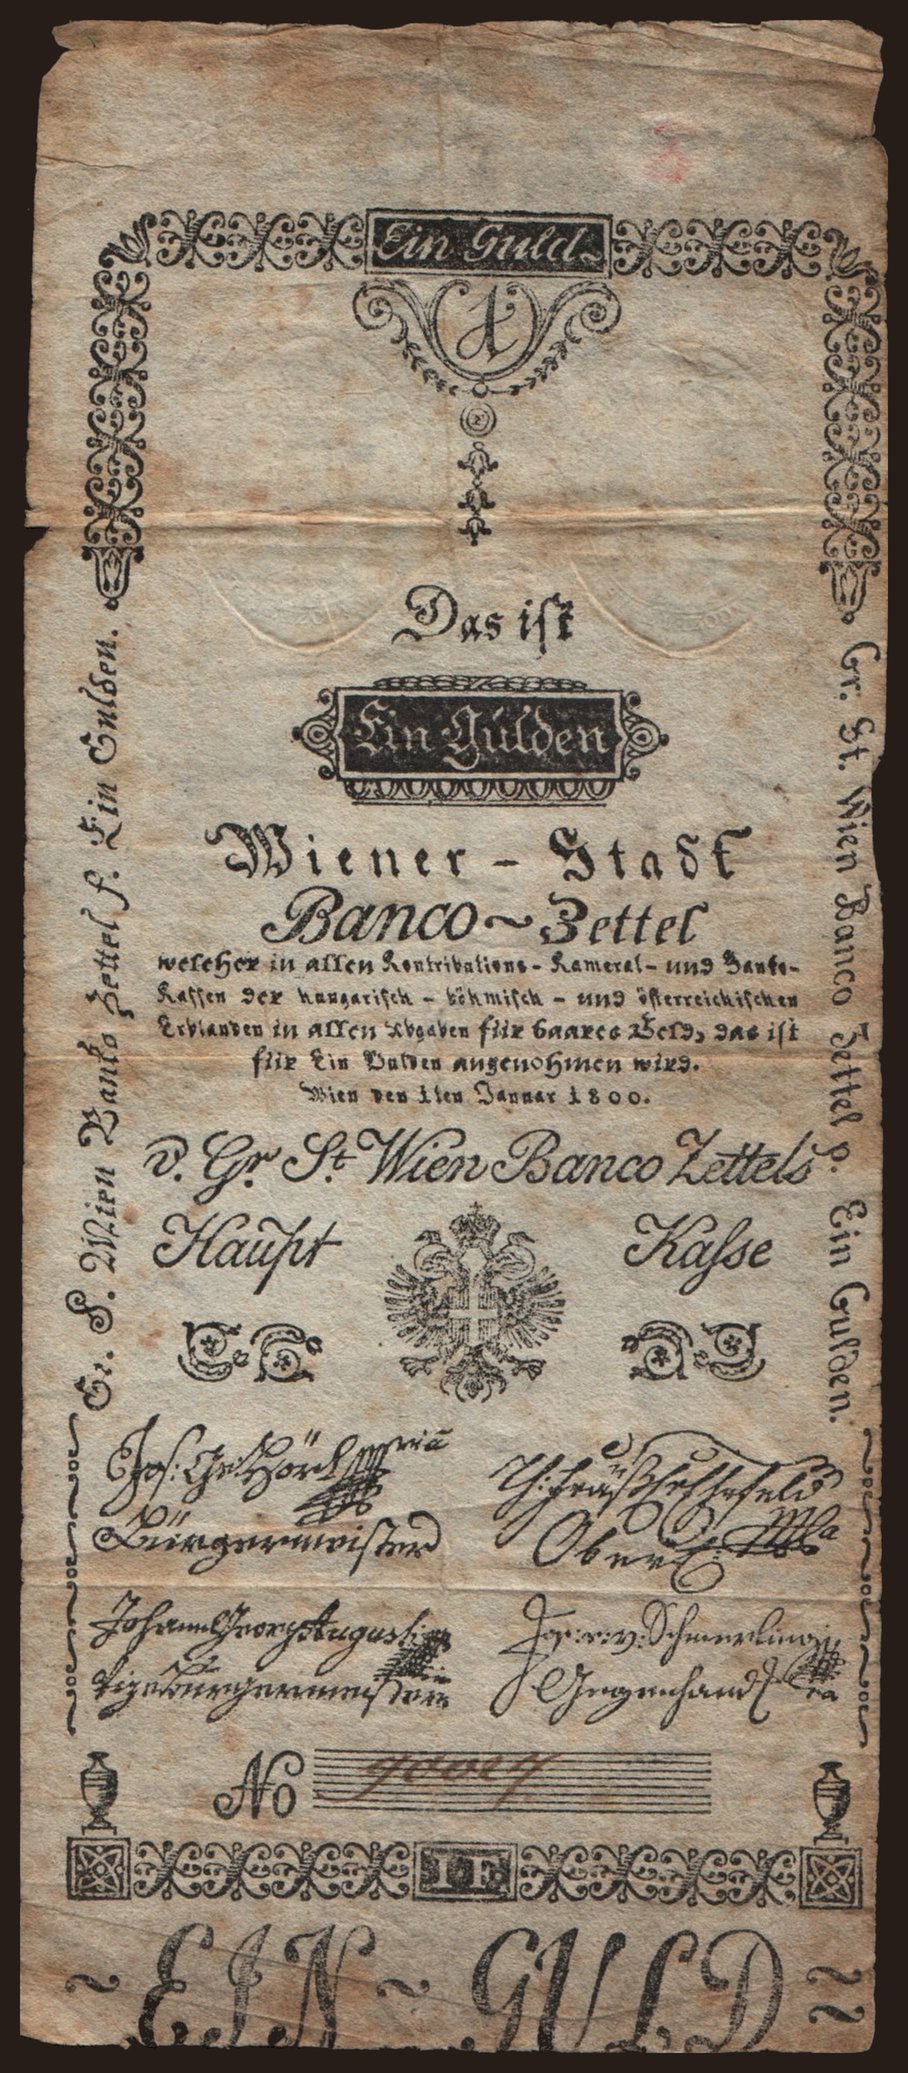 Ein Guld
1
Das ist
Ein Gulden
Wiener – Stadt
Banco ~ Zettel
welcher in allen Kontributions- Kameral- und Banko-
Kassen der hungarisch – böhmisch – und österreichischen
Erblanden in allen Abgaben für baares Geld, das ist
für Ein Gulden angenohmen wird.
Wien den 1ten Januar 1800.
d. Gr. St. Wien Banco Zettels
Haupt Kasse
Gr. S. Wien Banko Zettel f. Ein Gulden.
Gr. St. Wien Banco Zettel p. Ein Gulden.
Jos: Ge: Hörl
Bürgermeister
Johann Georg Augusti
Vizebürgermeister
Jos: v: Schmerling
Gegenhand
No
1 F.
~ EIN ~ GULD ~